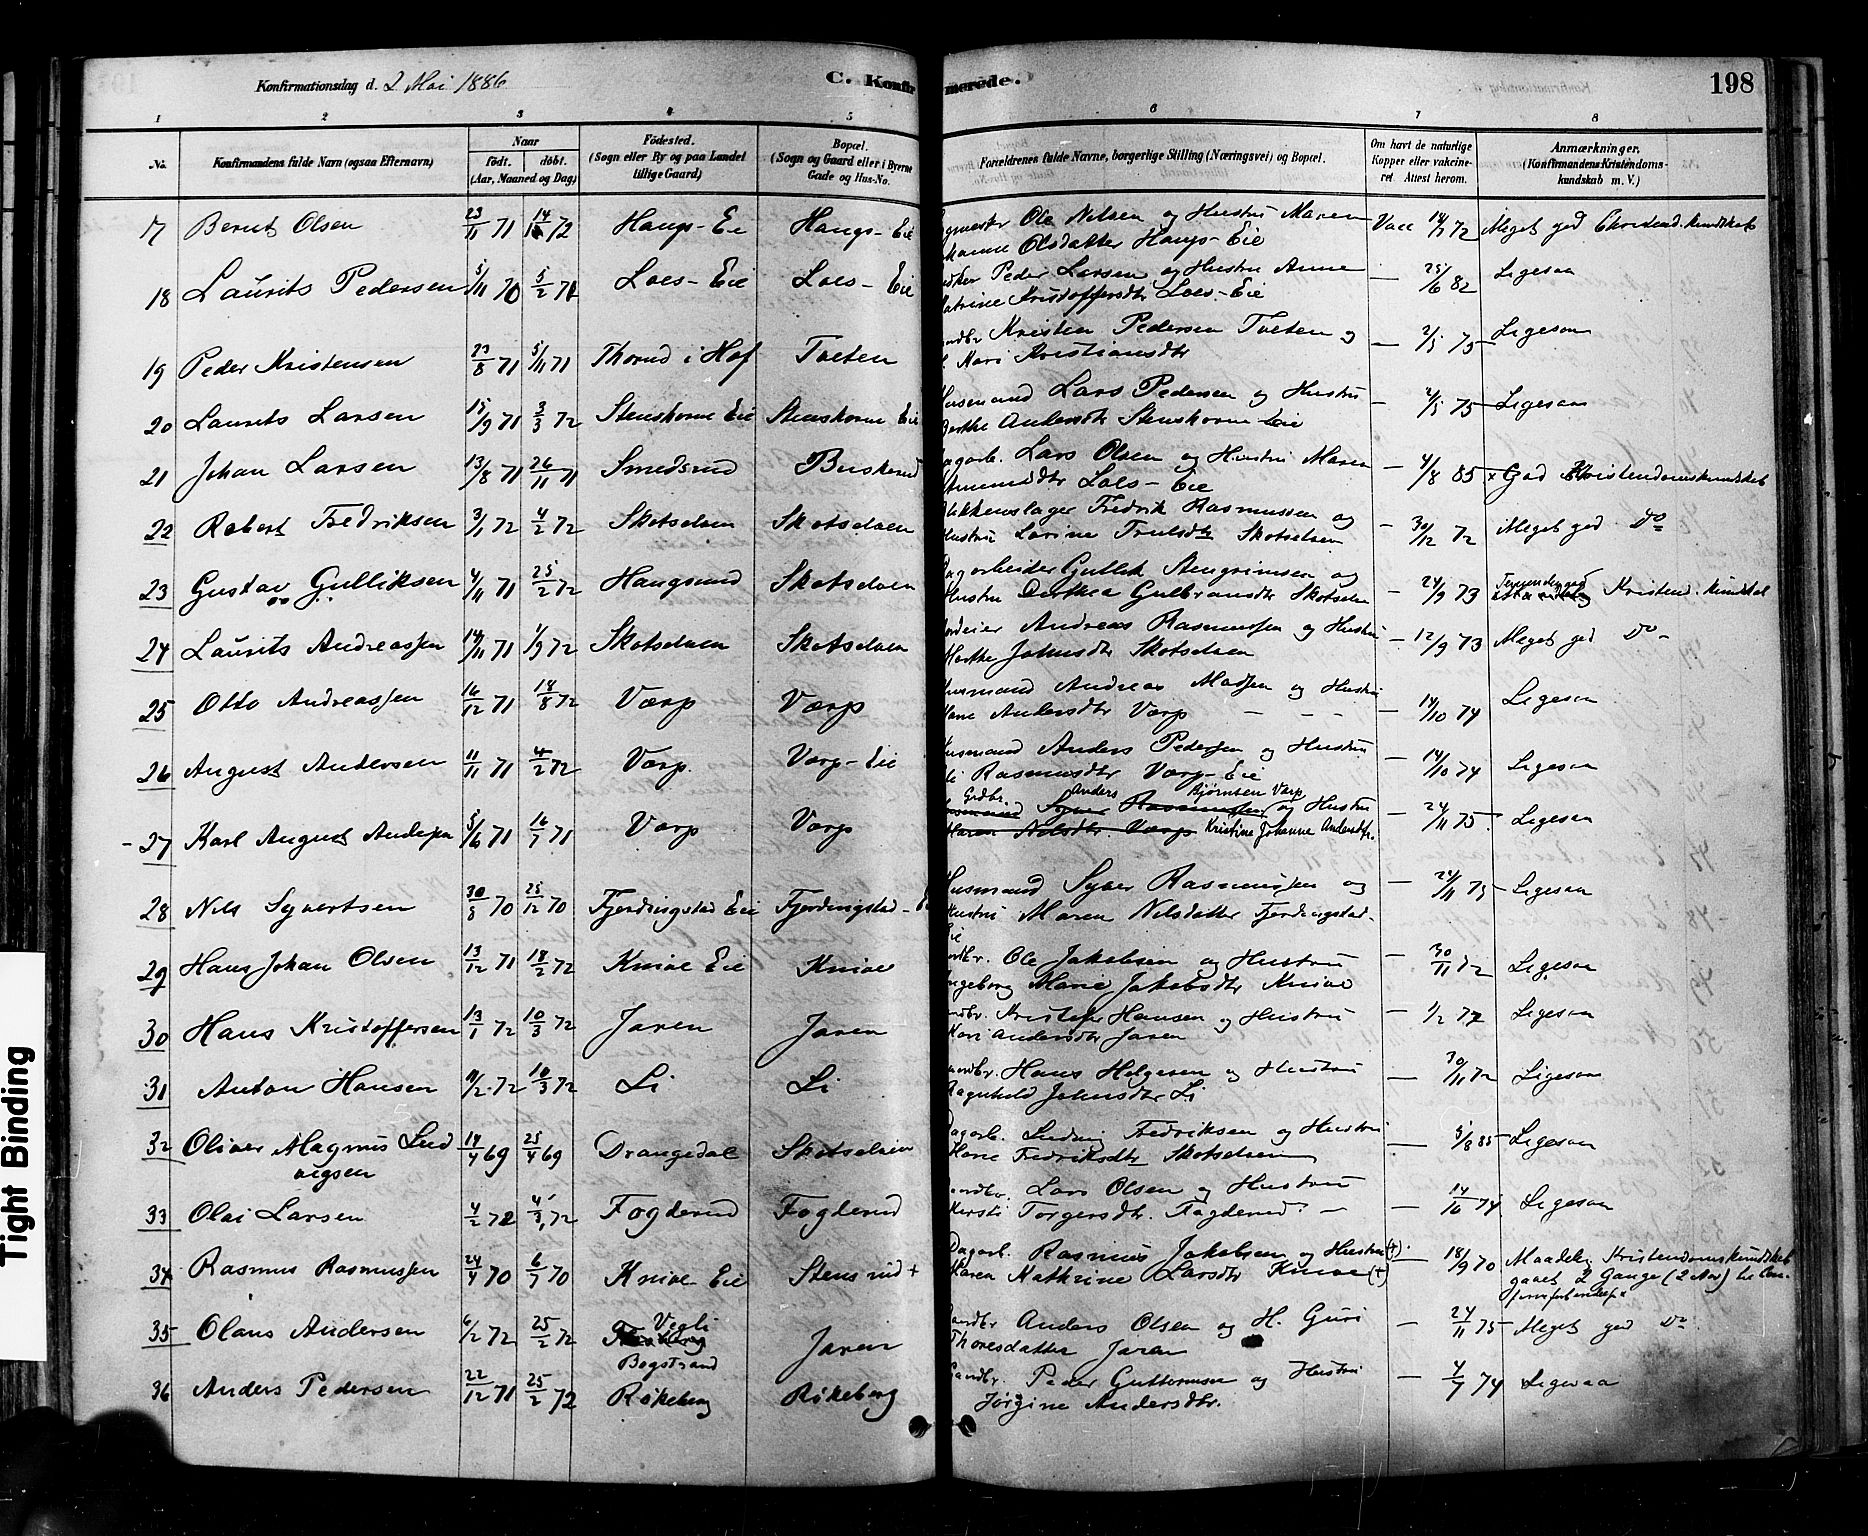 Konfirmationsdag d. 2 Mai 1886
C. Konfirmerede.
198
1 2 3 4 5 6 7 8
No. Konfirmandens fulde Navn (ogsaa Efternavn) Naar født. døbt. (Aar, Maaned og Dag) Fødested. (Sogn eller By og paa Landet tillige Gaard) Bopæl. (Sogn og Gaard eller i Byerne Gade og Hus-No. Forældrenes fulde Navne, borgerlige Stilling (Næringsvei) og Bopæl. Om havt de naturlige Kopper eller vakcineret. Attest herom. Anmærkninger. (Konfirmandens Kristendomskundskab m. V.)
7 Bernt Olsen 23/11 71 14/ 72 Haugs-Eie Haugs-Eie Ole Nilsen og Hustru Maren Vacc 72 Meget god Christend. kundskab
Olsdatter Haugs-Eie
18 Laurits Pedersen 5/11 70 5/2 71 Loes-Eie Loes-Eie Peder Larsen og Hustru Anne — 25/6 82 Ligesaa
Kristoffersdtr Loes-Eie
19 Peder Kristensen 23/8 71 5/11 71 Thorud i Hof Tveten Kristen Pedersen Tveten og — 2/5 75 Ligesaa
Mari Kristiansdtr
20 Laurits Larsen 15/9 71 3/3 72 Stenshorne Eie Stenshorne Eie Husmand Lars Pedersen og Hustru — 2/5 75 Ligesaa
Berthe Andersdtr Stenshorne Eie
21 Johan Larsen 13/8 71 26/11 71 Smedsrud Buskerud Dagarb. Lars Olsen og Hustru Maren — 4/8 85 x God Kristendomskundskab
Loes-Eie
22 Robert Fredriksen 3/1 72 4/2 72 Skotselven Skotselven Blikkenslager Fredrik Rasmussen og — 30/12 72 Meget god Do
Hustru Lovine Trulsdtr Skotselven
23 Gustav Gulliksen 4/11 71 25/2 72 Haugsund Skotselven Dagarbeider Gullik Stengrimsen og — 24/9 73 Kristend. kundskab
Hustru Dorthea Gulbransdtr Skotselven
24 Laurits Andreassen 14/11 71 1/9 72 Skotselven Skotselven Andreas Rasmussen og Hustru — 12/9 73 Meget god Do
Johnsdtr Skotselven
25 Otto Andreassen 16/12 71 18/8 72 Værp Værp Husmand Andreas Madsen og Hustru
Andersdtr Værp — — — — 14/10 74 Ligesaa
26 August Andersen 11/11 71 4/2 72 Værp Værp-Eie Husmand Anders Pedersen og Hustru — 14/10 74 Ligesaa
Rasmusdtr Værp-Eie
Grdbr. Anders Bjørnsen Værp
27 Karl August Andersen 5/6 71 16/7 71 Værp Værp Husmand Syver Rasmussen og Hustru — 24/11 75 Ligesaa
Maren Nilsdtr Værp Kristine Johanne Andersdtr.
28 Nils Syvertsen 30/8 70 25/12 70 Fjerdingstad Eie Fjerdingstad-Eie Husmand Syver Rasmussen og — 24/11 75 Ligesaa
Hustru Maren Nilsdatter Fjerdingstad-
Eie
29 Hans Johan Olsen 13/12 71 18/2 72 Knive Eie Knive Ole Jakobsen og Hustru — 30/11 72 Ligesaa
Ingeborg Marie Jakobsdtr Knive
30 Hans Kristoffersen 13/1 72 10/3 72 Jaren Jaren Kristoffer Hansen og Hustru — 1/2 77 Ligesaa
Kari Andersdtr Jaren
31 Anton Hansen 11/2 72 10/3 72 Li Li Gaardbr. Hans Helgesen og Hustru — 30/11 72 Ligesaa
Ragnhild Johnsdtr Li
32 Oliver Magnus Lud 14/4 69 25/4 69 Drangedal Skotselven Dagarb. Ludvig Fredriksen og Hustru — 5/8 85 Ligesaa
vigsen Marie Fredriksdtr Skotselven
33 Olai Larsen 4/2 72 4/3 72 Fogderud Fogderud Gaardbr. Lars Olsen og Hustru — 14/10 74 Ligesaa
Kersti Torgersdtr. Fogderud —
34 Rasmus Rasmussen 24/4 70 6/7 70 Knive Eie Stensrud + Dagarb. Rasmus Jakobsen og Hustru (+) — 18/9 70 Maadelig Kristendomskundskab
Karen Kathrine Larsdtr Knive (+) gaaet 2 Gange (2 Aar) til Con-
35 Olaus Andersen 6/2 72 25/2 72 Vegli Bogstrand Jaren Gaardbr Anders Olsen og H. Guri — 24/11 75 Meget god Do
Thoresdatter Jaren
36 Anders Pedersen 22/12 71 25/2 72 Røkeberg Røkeberg Gaardbr. Peder Guttormsen og Hustru — 4/7 74 Ligesaa
Jørgine Andersdtr.
Tight Binding